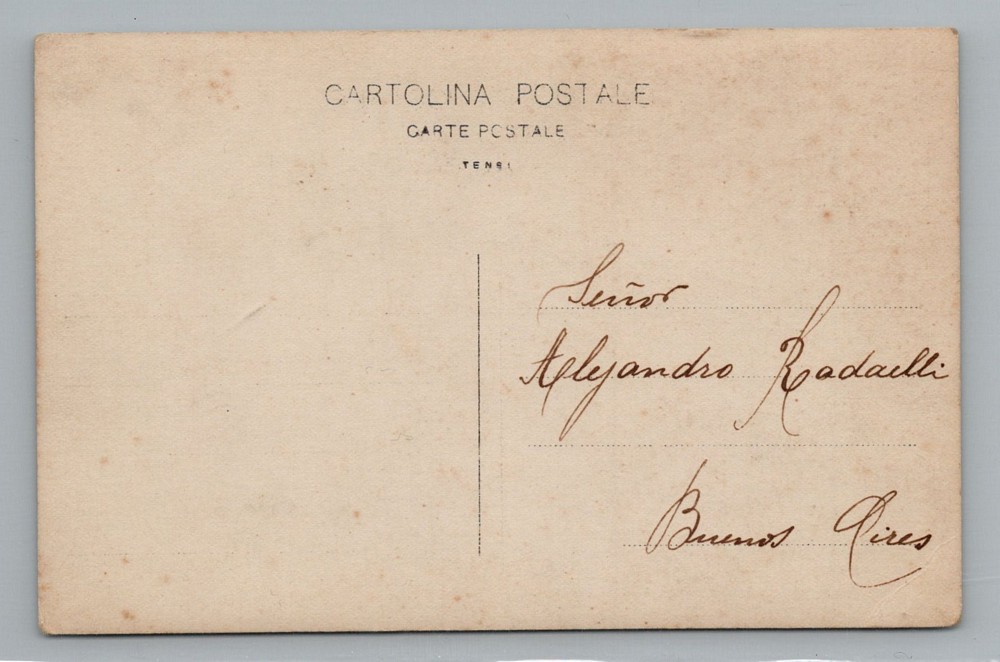 CARTOLINA POSTALE
CARTE POSTALE
TENSI
Señor
Alejandro Radaelli
Buenos Aires